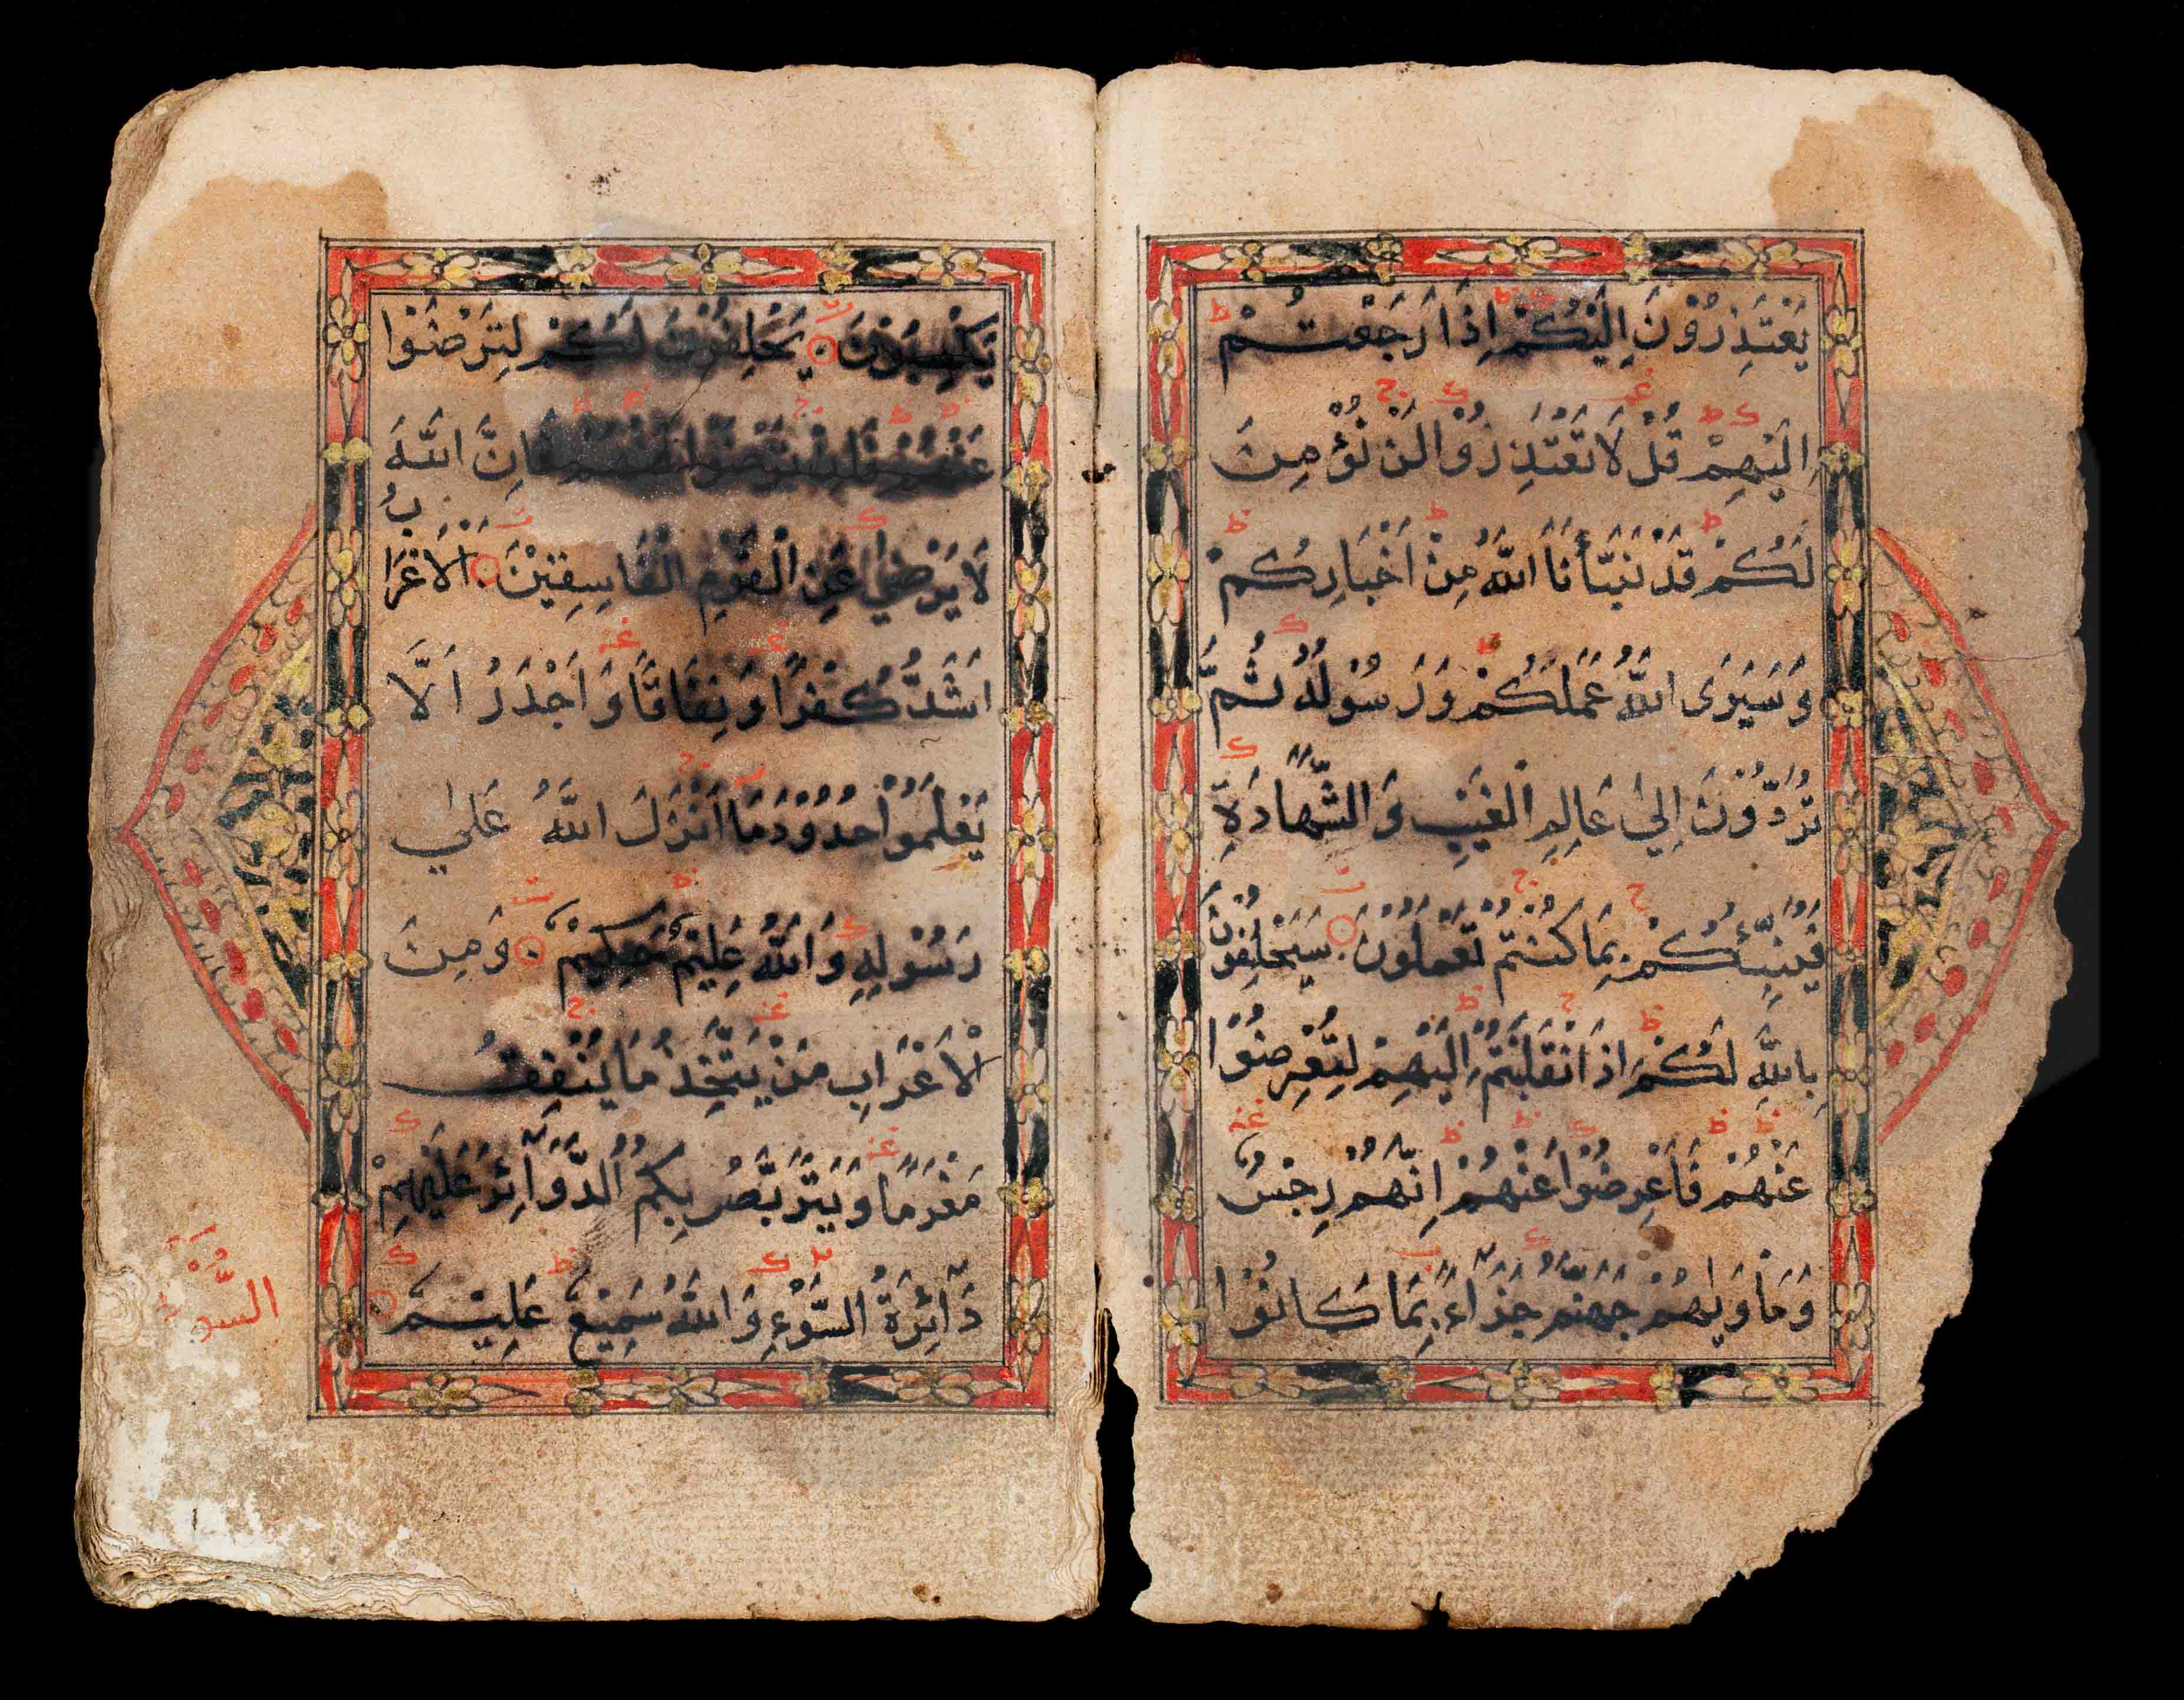 يَعْتَذِرُوْنَ اِلَيْكُمْ اِذَا رَجَعْتُمْ
اِلَيْهِمْ قُلْ لَا تَعْتَذِرُوْا لَنْ نُؤْمِنَ
لَكُمْ قَدْ نَبَّأَنَا اللّٰهُ مِنْ اَخْبَارِكُمْ
وَسَيَرَى اللّٰهُ عَمَلَكُمْ وَرَسُوْلُهُ ثُمَّ
تُرَدُّوْنَ اِلٰي عَالِمِ الْغَيْبِ وَالشَّهَادَةِ
فَيُنَبِّئُكُمْ بِمَا كُنْتُمْ تَعْمَلُوْنَ سَيَحْلِفُوْنَ
بِاللّٰهِ لَكُمْ اِذَا انْقَلَبْتُمْ اِلَيْهِمْ لِتُعْرِضُوْا
عَنْهُمْ فَاَعْرِضُوْا عَنْهُمْ اِنَّهُمْ رِجْسٌ
وَمَأْوٰيهُمْ جَهَنَّمُ جَزَآءً بِمَا كَانُوْا
يَكْسِبُوْنَ يَحْلِفُوْنَ لَكُمْ لِتَرْضَوْا
عَنْهُمْ فَاِنْ تَرْضَوْا عَنْهُمْ فَاِنَّ اللّٰهَ
لَا يَرْضٰي عَنِ الْقَوْمِ الْفَاسِقِيْنَ اَلْاَعْرَابُ
اَشَدُّ كُفْرًا وَنِفَاقًا وَاَجْدَرُ اَلَّا
يَعْلَمُوْا حُدُوْدَ مَا اَنْزَلَ اللّٰهُ عَلٰي
رَسُوْلِهِ وَاللّٰهُ عَلِيْمٌ حَكِيْمٌ وَمِنَ
الْاَعْرَابِ مَنْ يَتَّخِذُ مَا يُنْفِقُ
مَغْرَمًا وَيَتَرَبَّصُ بِكُمُ الدَّوَآئِرَ عَلَيْهِمْ
دَآئِرَةُ السَّوْءِ وَاللّٰهُ سَمِيْعٌ عَلِيْمٌ